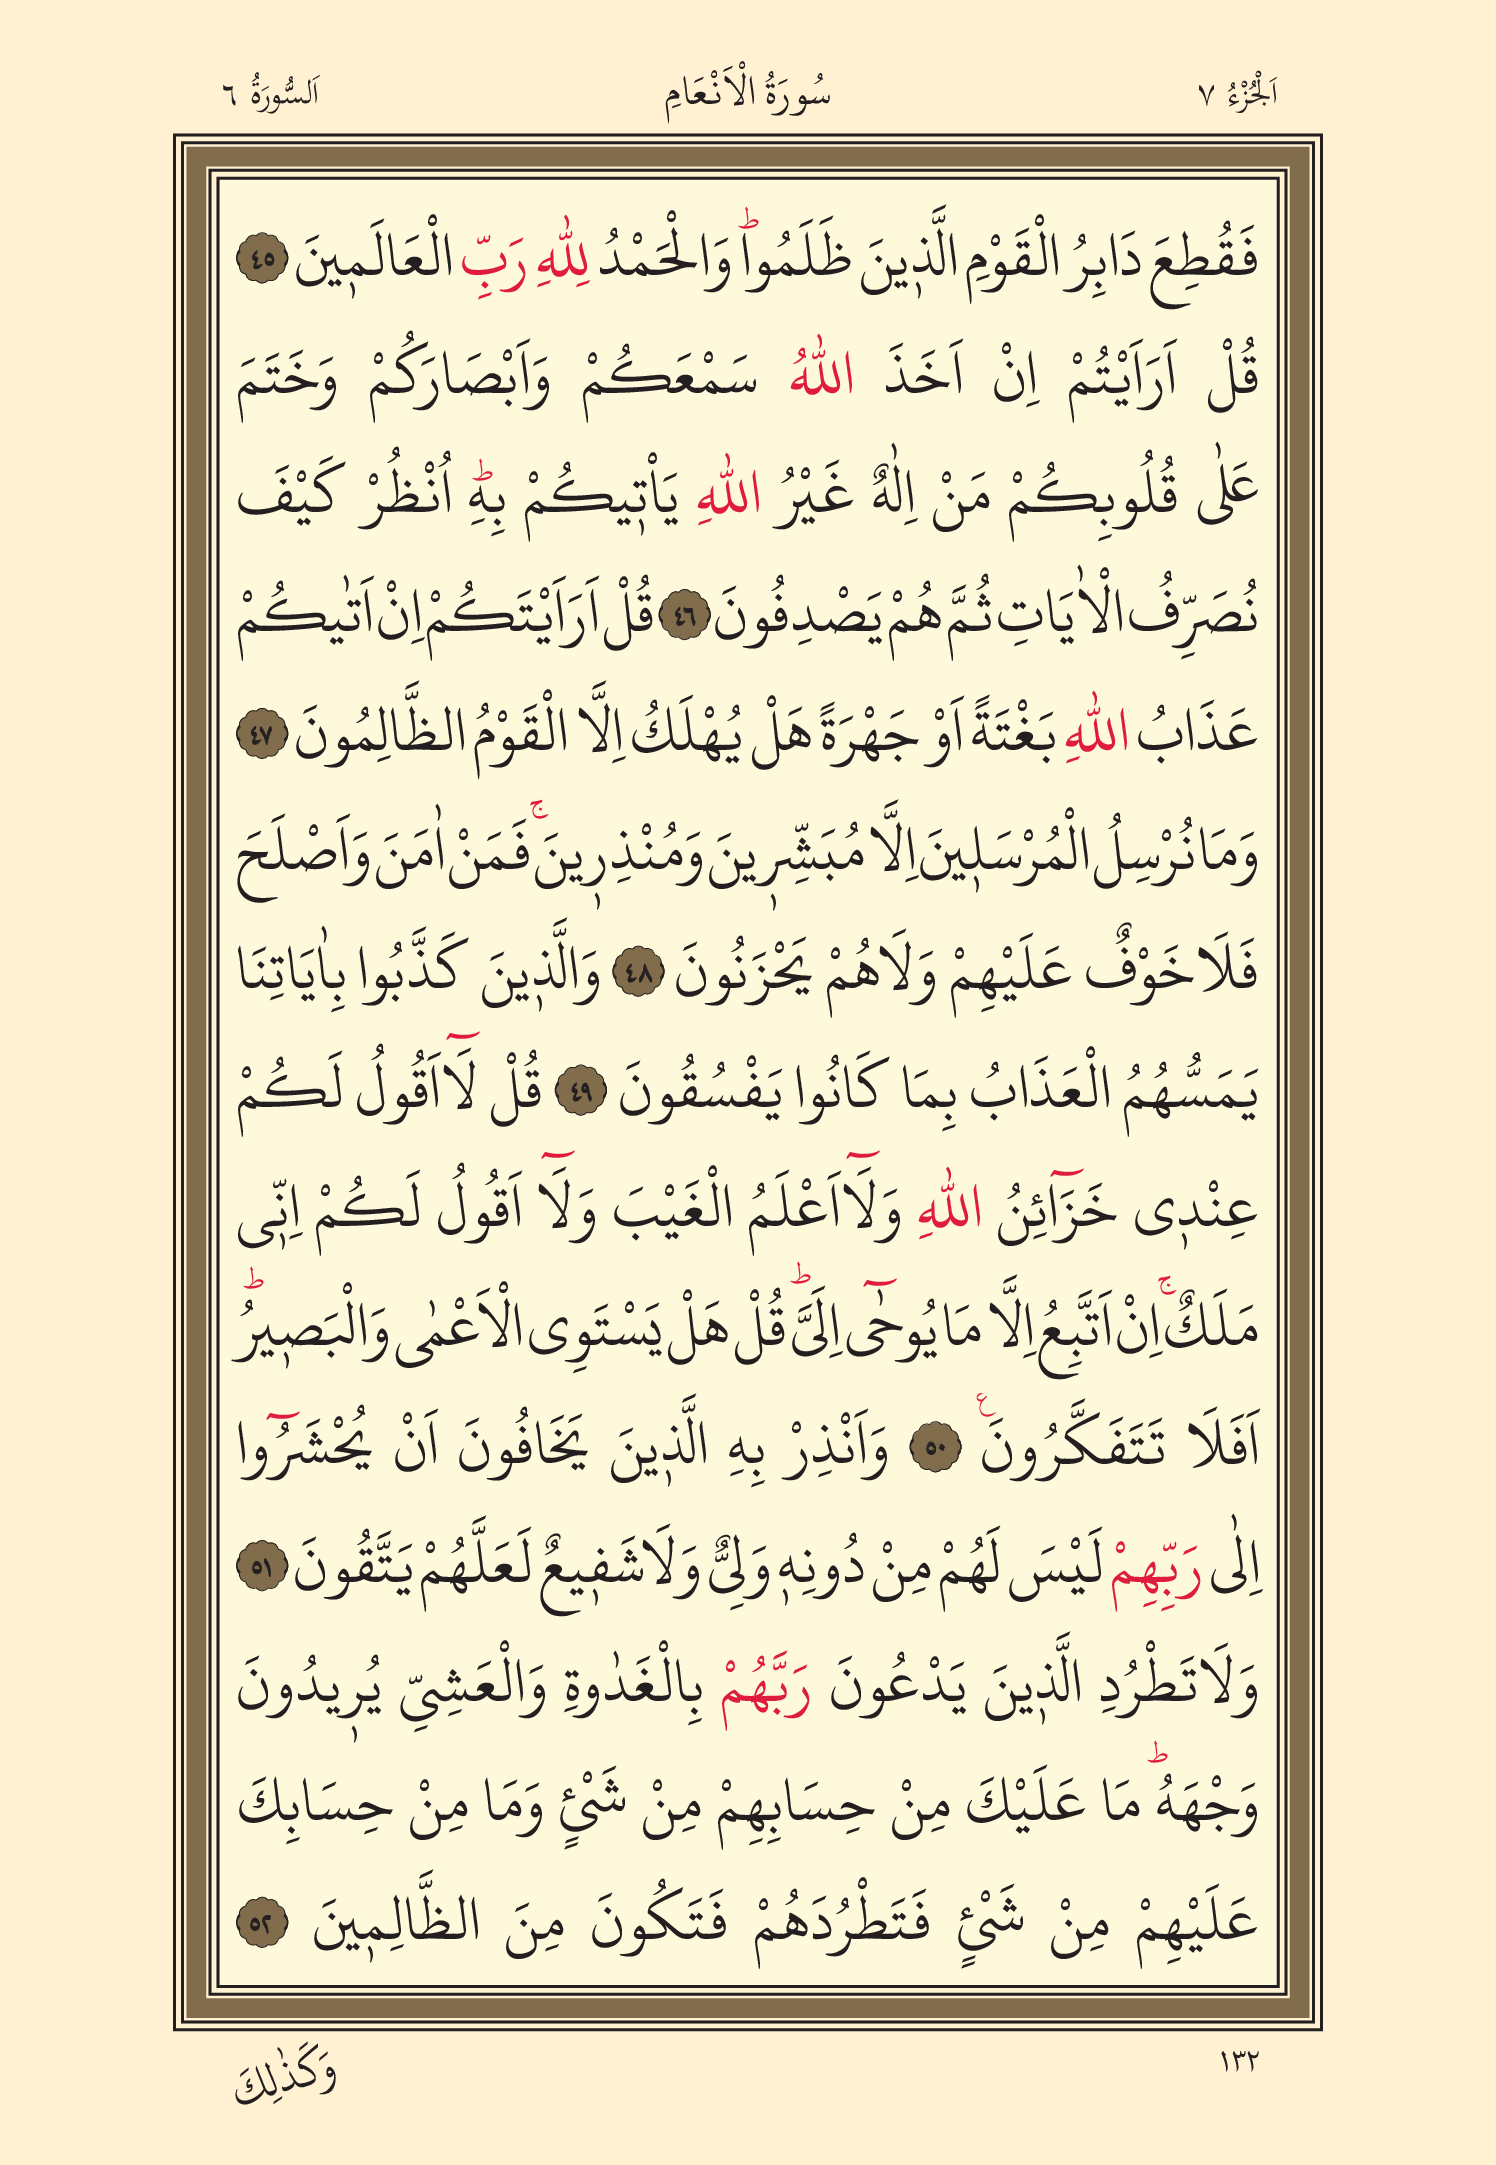 اَلْجُزْءُ ٧ سُورَةُ الْاَنْعَامِ اَلسُّورَةُ ٦
فَقُطِعَ دَابِرُ الْقَوْمِ الَّذ۪ينَ ظَلَمُواۜ وَالْحَمْدُ لِلّٰهِ رَبِّ الْعَالَم۪ينَ ﴿٤٥﴾
قُلْ اَرَاَيْتُمْ اِنْ اَخَذَ اللّٰهُ سَمْعَكُمْ وَاَبْصَارَكُمْ وَخَتَمَ
عَلٰى قُلُوبِكُمْ مَنْ اِلٰهٌ غَيْرُ اللّٰهِ يَأْت۪يكُمْ بِهِۜ اُنْظُرْ كَيْفَ
نُصَرِّفُ الْاٰيَاتِ ثُمَّ هُمْ يَصْدِفُونَ ﴿٤٦﴾ قُلْ اَرَاَيْتَكُمْ اِنْ اَتٰيكُمْ
عَذَابُ اللّٰهِ بَغْتَةً اَوْ جَهْرَةً هَلْ يُهْلَكُ اِلَّا الْقَوْمُ الظَّالِمُونَ ﴿٤٧﴾
وَمَا نُرْسِلُ الْمُرْسَل۪ينَ اِلَّا مُبَشِّر۪ينَ وَمُنْذِر۪ينَۚ فَمَنْ اٰمَنَ وَاَصْلَحَ
فَلَا خَوْفٌ عَلَيْهِمْ وَلَا هُمْ يَحْزَنُونَ ﴿٤٨﴾ وَالَّذ۪ينَ كَذَّبُوا بِاٰيَاتِنَا
يَمَسُّهُمُ الْعَذَابُ بِمَا كَانُوا يَفْسُقُونَ ﴿٤٩﴾ قُلْ لَٓا اَقُولُ لَكُمْ
عِنْد۪ى خَزَٓائِنُ اللّٰهِ وَلَٓا اَعْلَمُ الْغَيْبَ وَلَٓا اَقُولُ لَكُمْ اِنّ۪ى
مَلَكٌۚ اِنْ اَتَّبِعُ اِلَّا مَا يُوحٰٓى اِلَيَّۜ قُلْ هَلْ يَسْتَوِى الْاَعْمٰى وَالْبَص۪يرُۜ
اَفَلَا تَتَفَكَّرُونَ۟ ﴿٥٠﴾ وَاَنْذِرْ بِهِ الَّذ۪ينَ يَخَافُونَ اَنْ يُحْشَرُٓوا
اِلٰى رَبِّهِمْ لَيْسَ لَهُمْ مِنْ دُونِه۪ وَلِىٌّ وَلَا شَف۪يعٌ لَعَلَّهُمْ يَتَّقُونَ ﴿٥١﴾
وَلَا تَطْرُدِ الَّذ۪ينَ يَدْعُونَ رَبَّهُمْ بِالْغَدٰوةِ وَالْعَشِىِّ يُر۪يدُونَ
وَجْهَهُۜ مَا عَلَيْكَ مِنْ حِسَابِهِمْ مِنْ شَيْءٍ وَمَا مِنْ حِسَابِكَ
عَلَيْهِمْ مِنْ شَيْءٍ فَتَطْرُدَهُمْ فَتَكُونَ مِنَ الظَّالِم۪ينَ ﴿٥٢﴾
١٣٢ وَكَذٰلِكَ